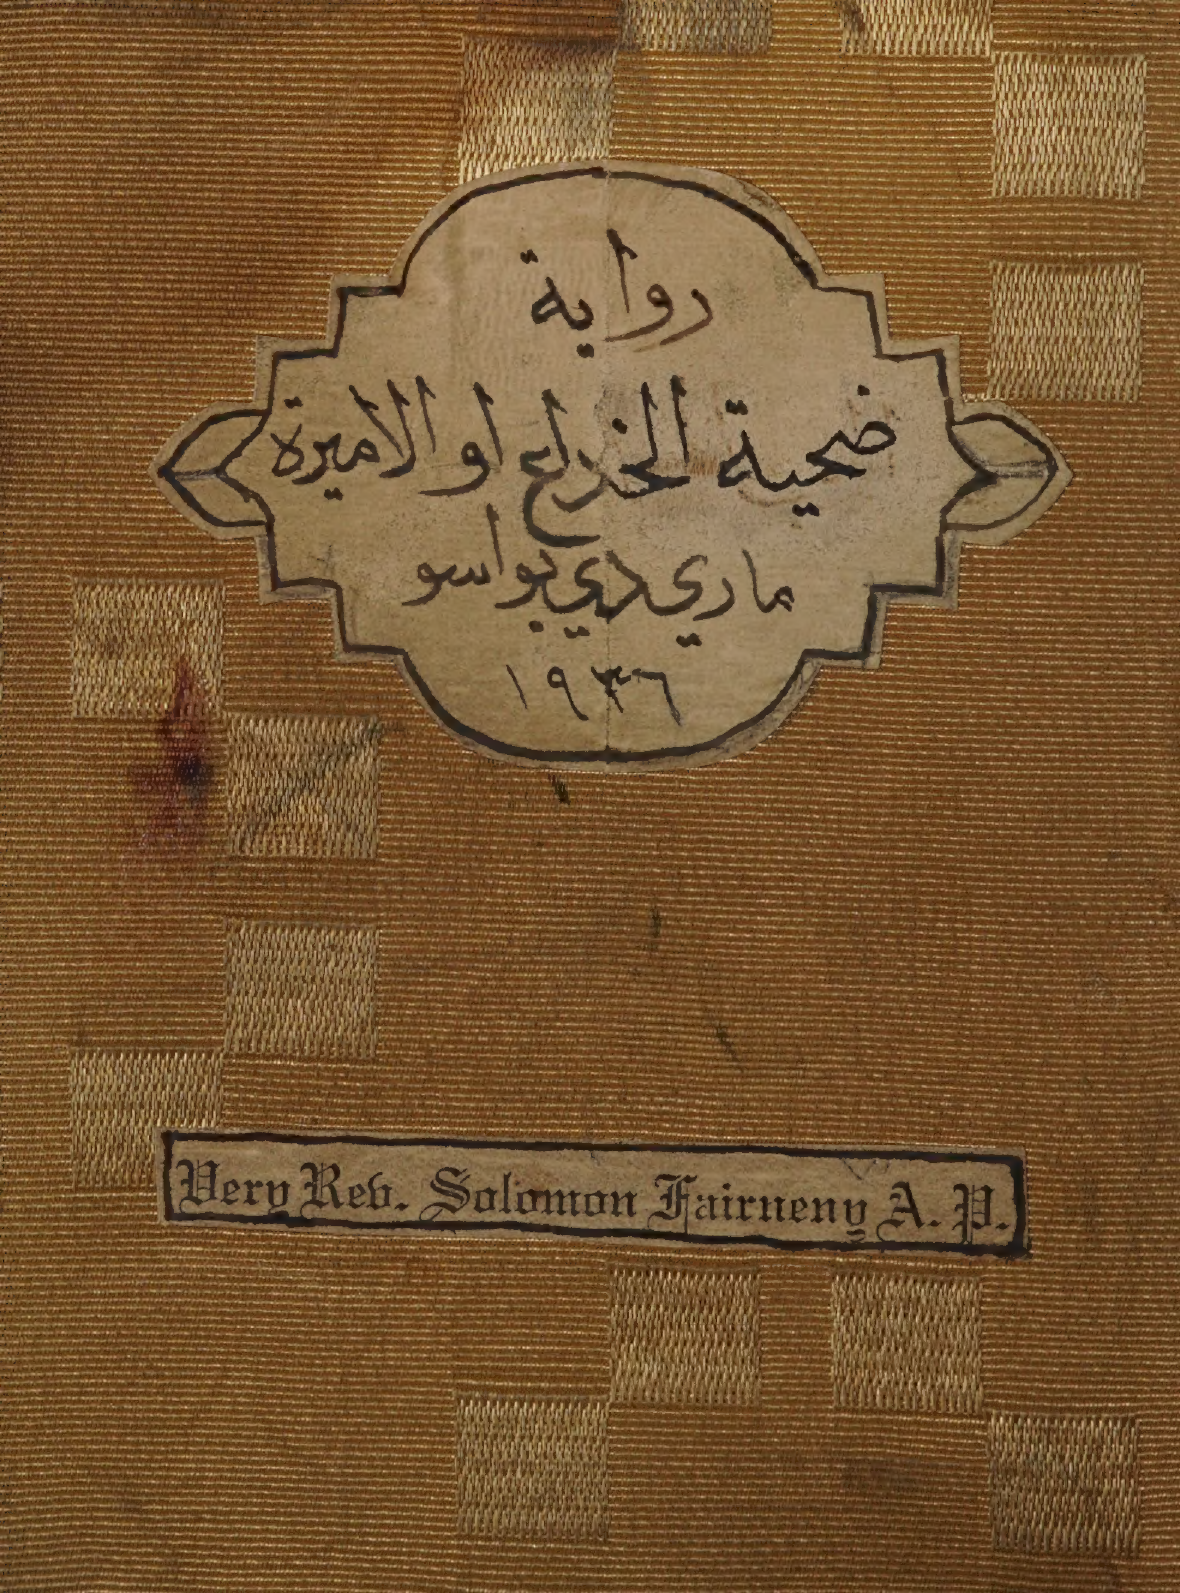 رواية
ضحية الخداع او الاميرة
ماري دي بواسو
١٩٣٦
Very Rev. Solomon Fairneny A. P.